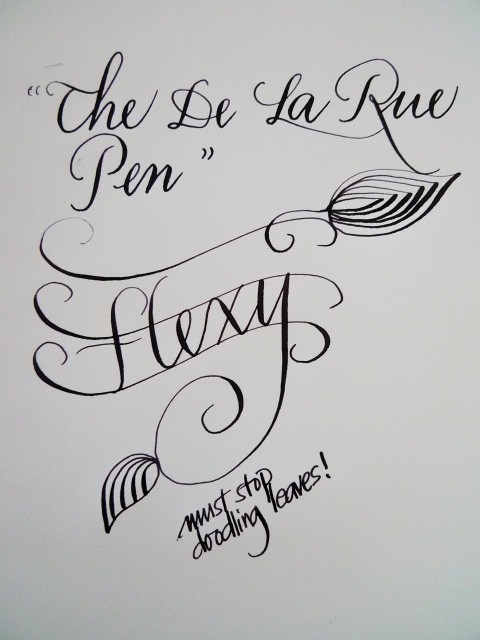 "The De La Rue
Pen"
Flexy
must stop
doodling leaves!